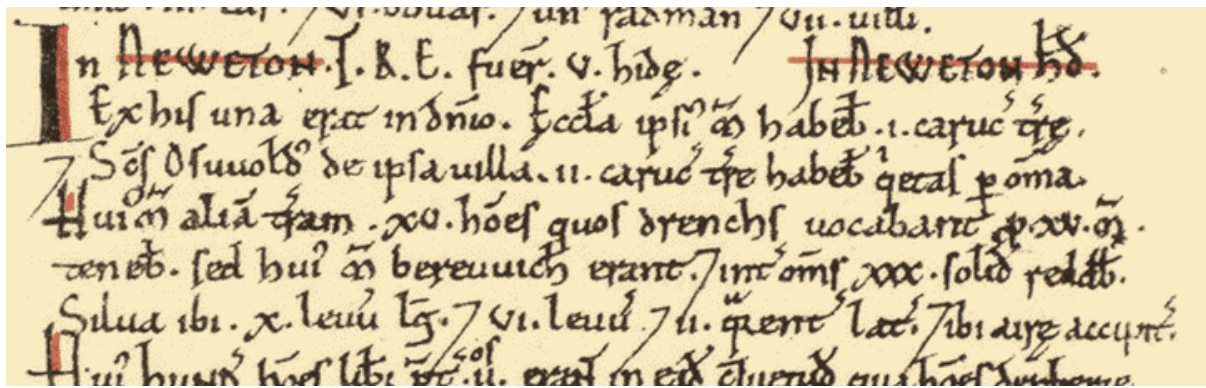 7 un' radman 7 vii. uilli.
In NEWETON. T. R. E. fuer̄. v. hidę. IN NEWETON HD̄.
Ex his una erat in dn̄io. Eccl̄a ipsi' m̄ habeb̄. i. caruc' tr̄ę.
7 Sc̄s Osuuold' de ipsa uilla. ii. caruc' tr̄e habeb̄ q'etas p om̄a.
Hui' m̄ aliā tr̄am. xv. hōes quos drenchs uocabant p xv. m̄.
teneb̄. sed hui' m̄ bereuuich erant. 7 int' om̄s xxx. solid' reddb̄.
Silua ibi. x. leuu' lḡ. 7 vi. leuu' 7 ii. q̄rent' lat'. 7 ibi airę accipit'.
Hui' hund' hōes lib̄i